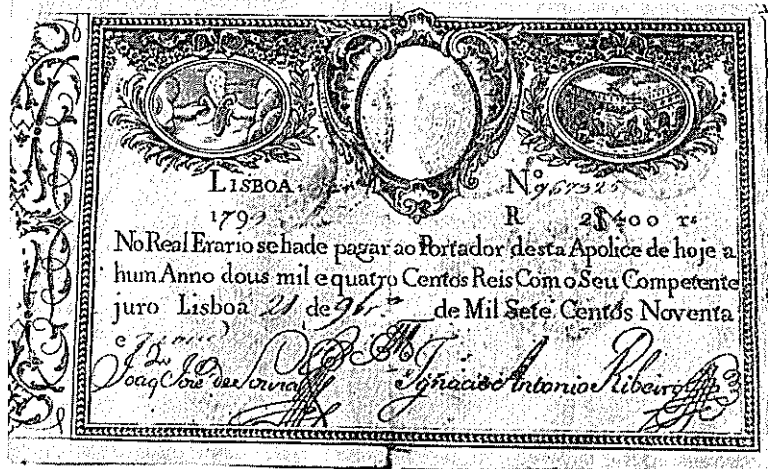 LISBOA Nº 967325
179 R 2$400 rs
No Real Erario se hade pagar ao Portador desta Apolice de hoje a
hum Anno dous mil e quatro Centos Reis Com o Seu Competente
juro Lisboa 21 de 9br.º de Mil Sete Centos Noventa
e
Joaq Jose de Souza Ignacio Antonio Ribeiro